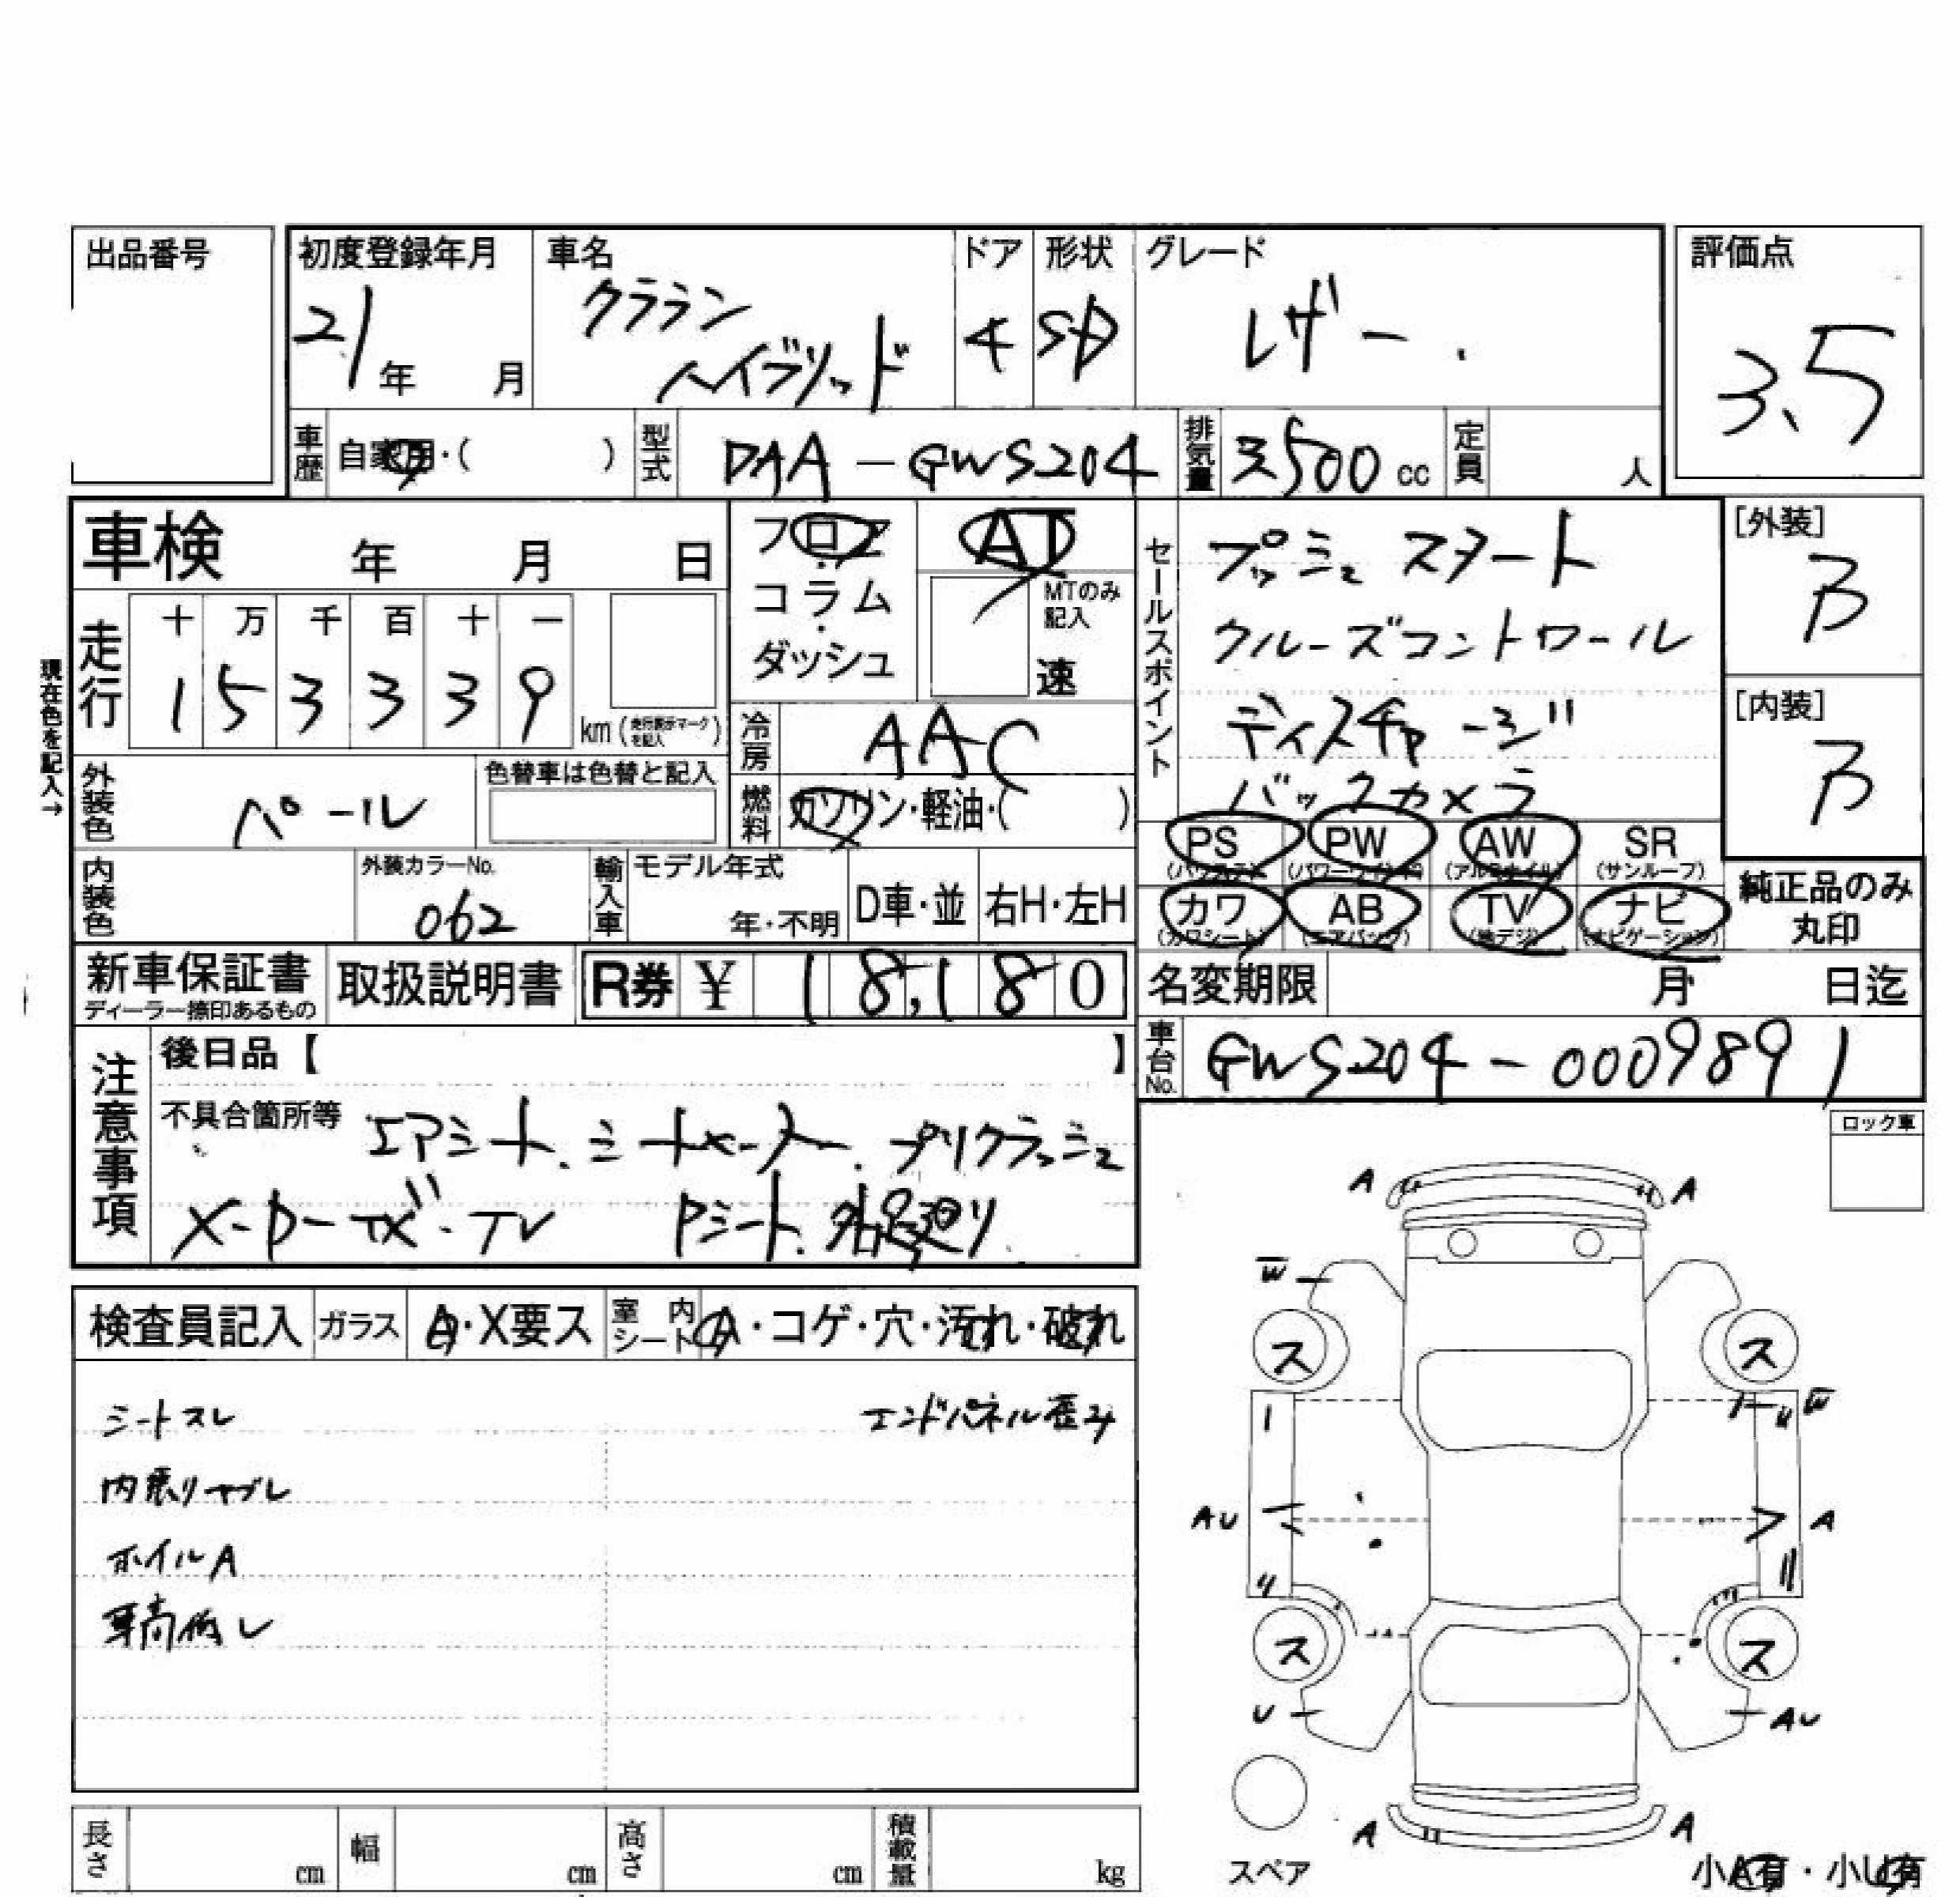 出品番号
初度登録年月 車名 ドア 形状 グレード 評価点
21年 月 クラウン ハイブリッド 4 SD レザー. 3.5
車歴 自家用・( ) 型式 DAA-GWS204 排気量 3500cc 定員 人
車検 年 月 日
フロア・コラム・ダッシュ
AT
MTのみ記入
速
セールスポイント
プッシュスタート
クルーズコントロール
ディスチャージ
バックカメラ
[外装]
B
[内装]
B
現在色を記入→
走行 十 万 千 百 十 一
1 5 3 3 3 9 km (走行表示マークを記入)
冷房 AAC
外装色 パール 色替車は色替と記入
燃料 ガソリン・軽油・( )
PS (パワステ) PW (パワーウィンド) AW (アルミホイル) SR (サンルーフ)
カワ (カワシート) AB (エアバッグ) TV (地デジ) ナビ (ナビゲーション)
純正品のみ
丸印
内装色 外装カラーNo. 062 輸入車 モデル年式 年・不明 D車・並 右H・左H
新車保証書 ディーラー捺印あるもの 取扱説明書 R券 ¥ 18,180
名変期限 月 日迄
車台No. GWS204-0009891
注意事項
後日品【 】
不具合箇所等 エアシート.シートヒーター.プリクラッシュ
Pシート.
ロック車
検査員記入 ガラス A・X要ス 室内シート A・コゲ・穴・汚れ・破れ
シートスレ エンドパネル歪み
内張りヤブレ
ホイルA
車高低し
A A
W
ス ス
W
AU A
ス ス
U AU
A A
スペア
小A有・小U有
長さ cm 幅 cm 高さ cm 積載量 kg